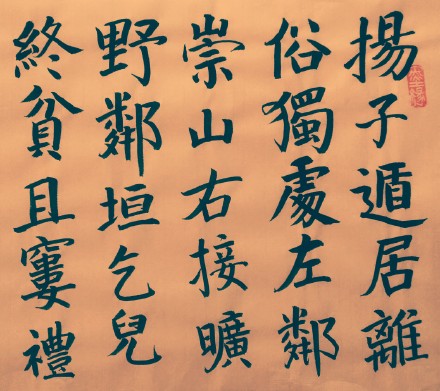 揚子遁居離
俗獨處左鄰
崇山右接曠
野鄰垣乞兒
終貧且窶禮